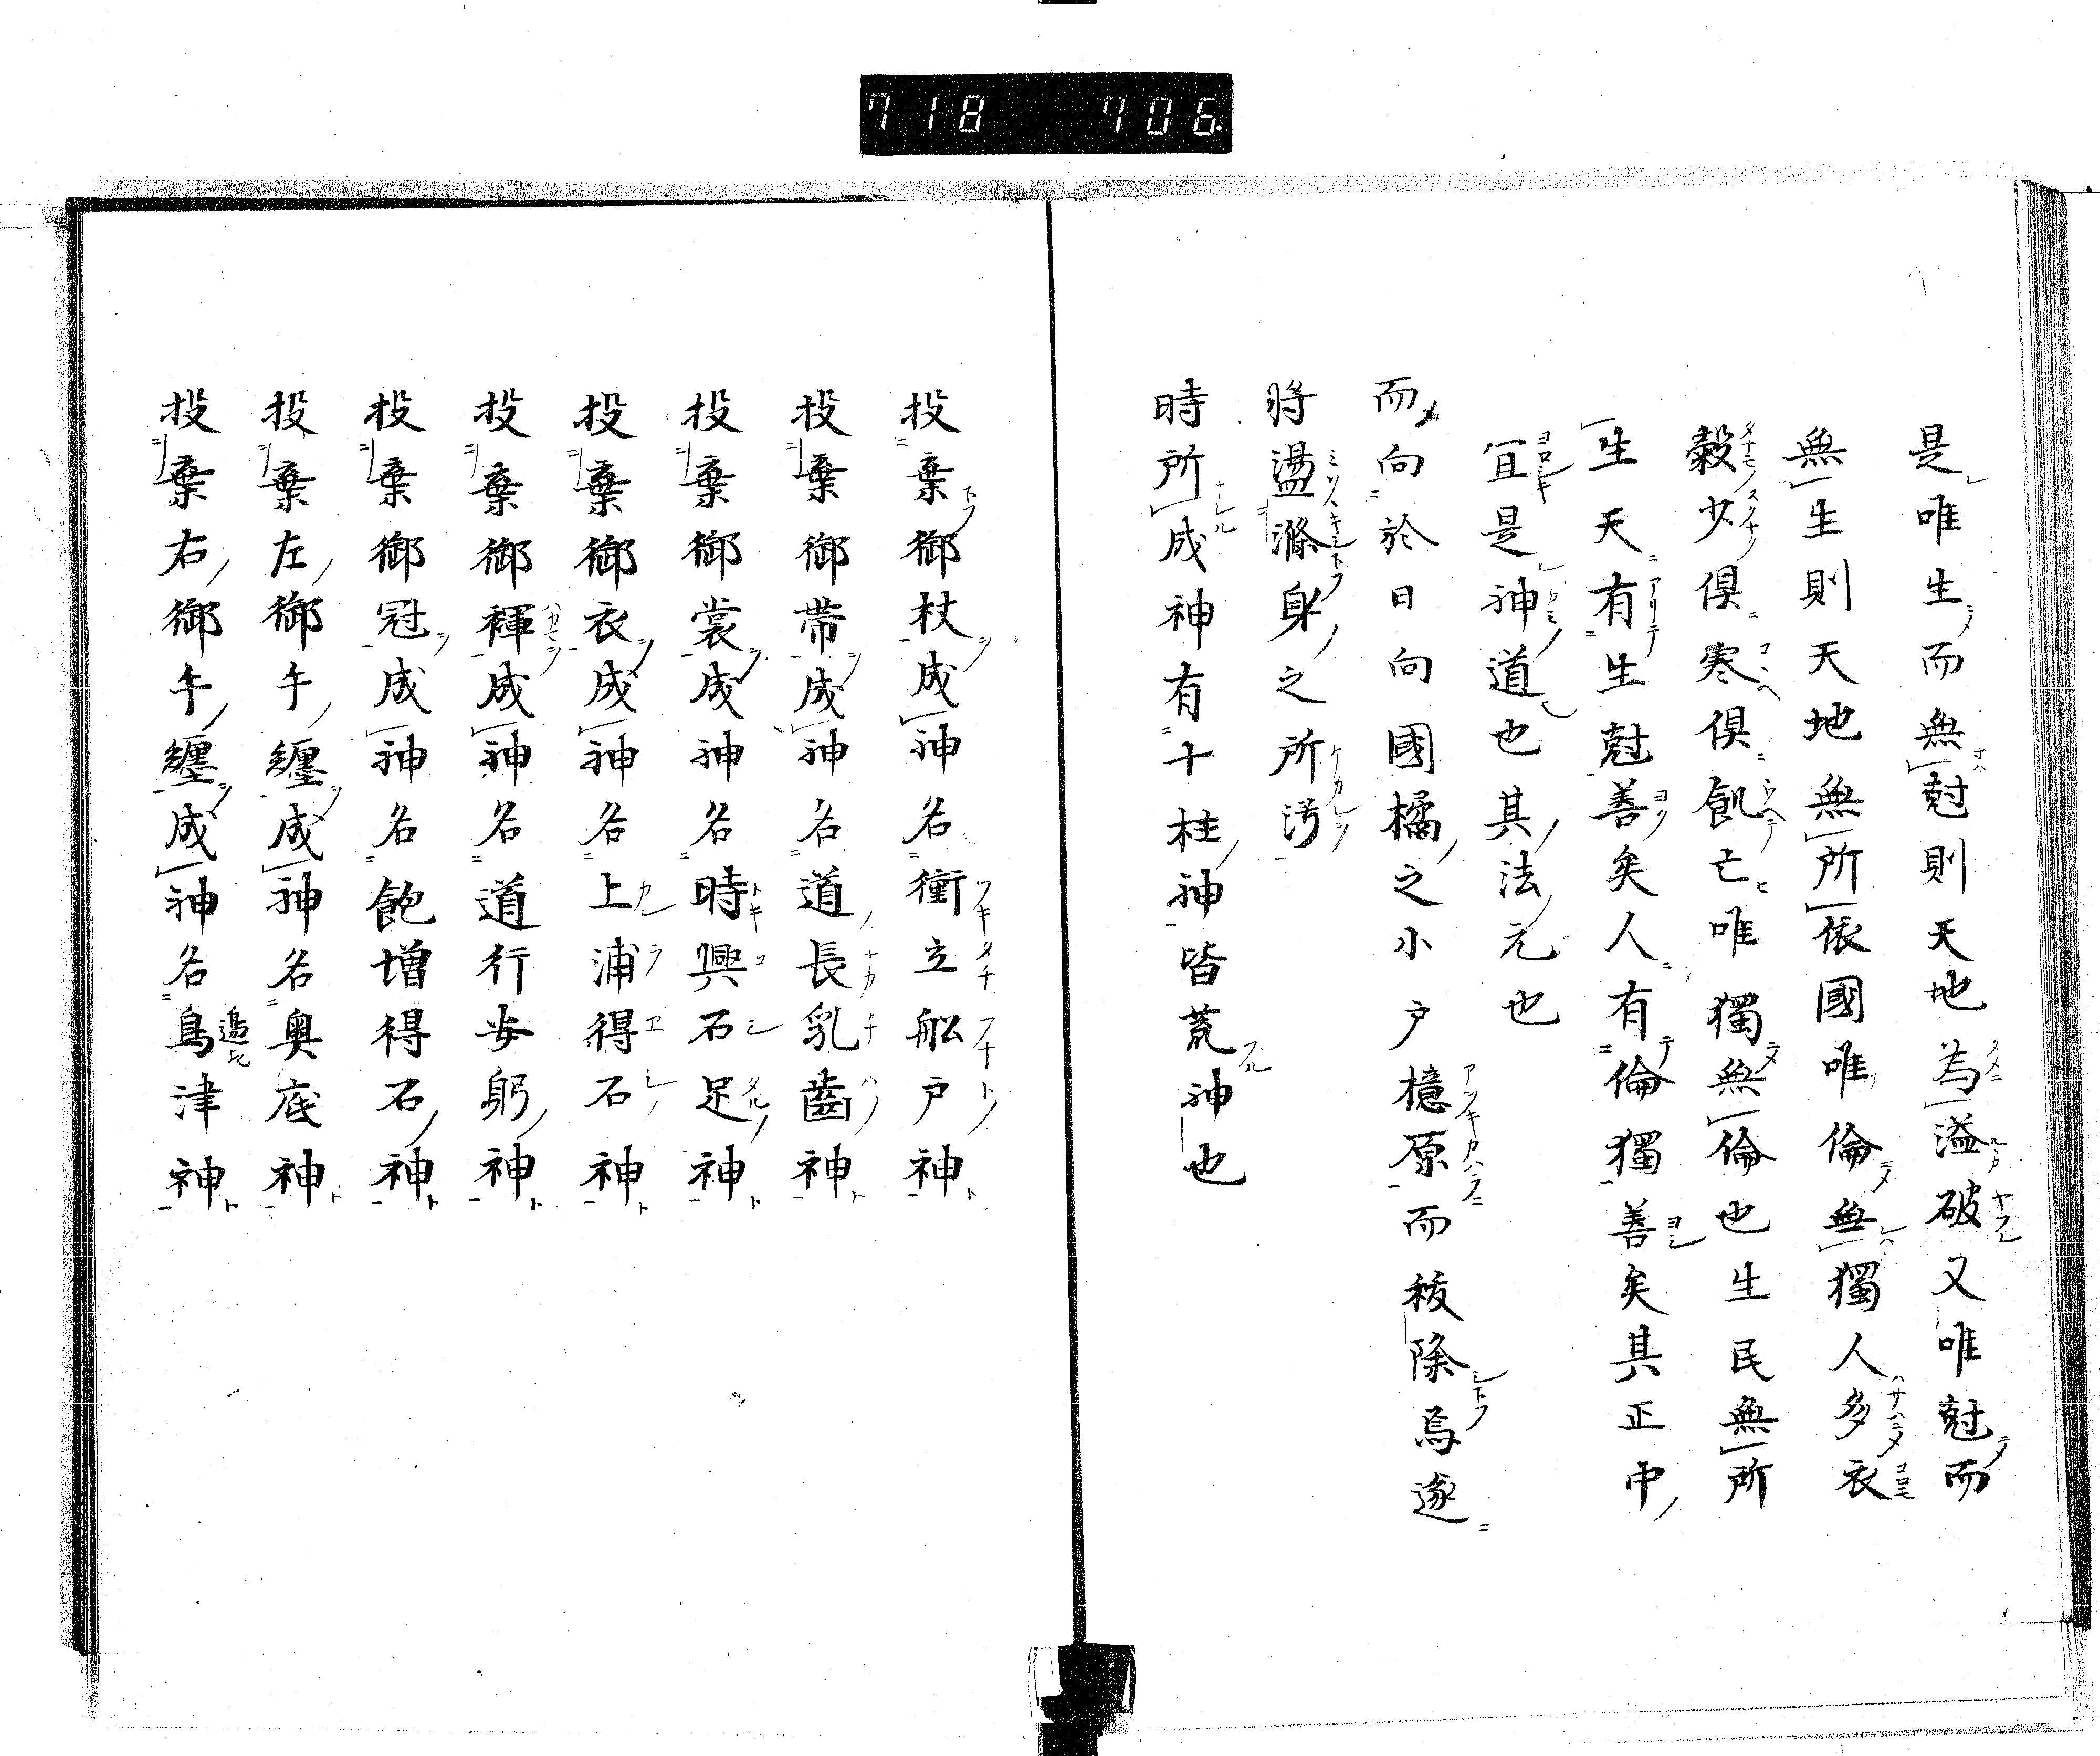 718 706
是唯生而無尅則天地為溢破又唯尅而
無生則天地無所依國唯倫無獨人多衣
穀少俱寒俱飢亡唯獨無倫也生民無所
生天有生尅善矣人有倫獨善矣其正中
宜是神道也其法元也
而向於日向國橘之小戸檍原而秡除焉遂
将盪滌身之所汚
時所成神有十柱神皆荒神也
投棄御杖成神名衝立船戸神
投棄御帯成神名道長乳齒神
投棄御裳成神名時興石足神
投棄御衣成神名上浦得石神
投棄御褌成神名道行安躬神
投棄御冠成神名飽増得石神
投棄左御手纏成神名奥疾神
投棄右御手纏成神名鳥津神